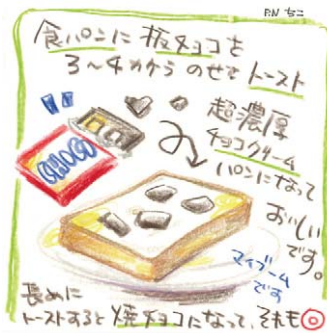 P.N ちこ
食パンに 板チョコを
3〜4カケラ のせて トースト
CHOCO
超濃厚
チョコクリーム
パンになって
おいしい
です。
マイブーム
です
長めに
トーストすると 焼チョコになって、それも◎